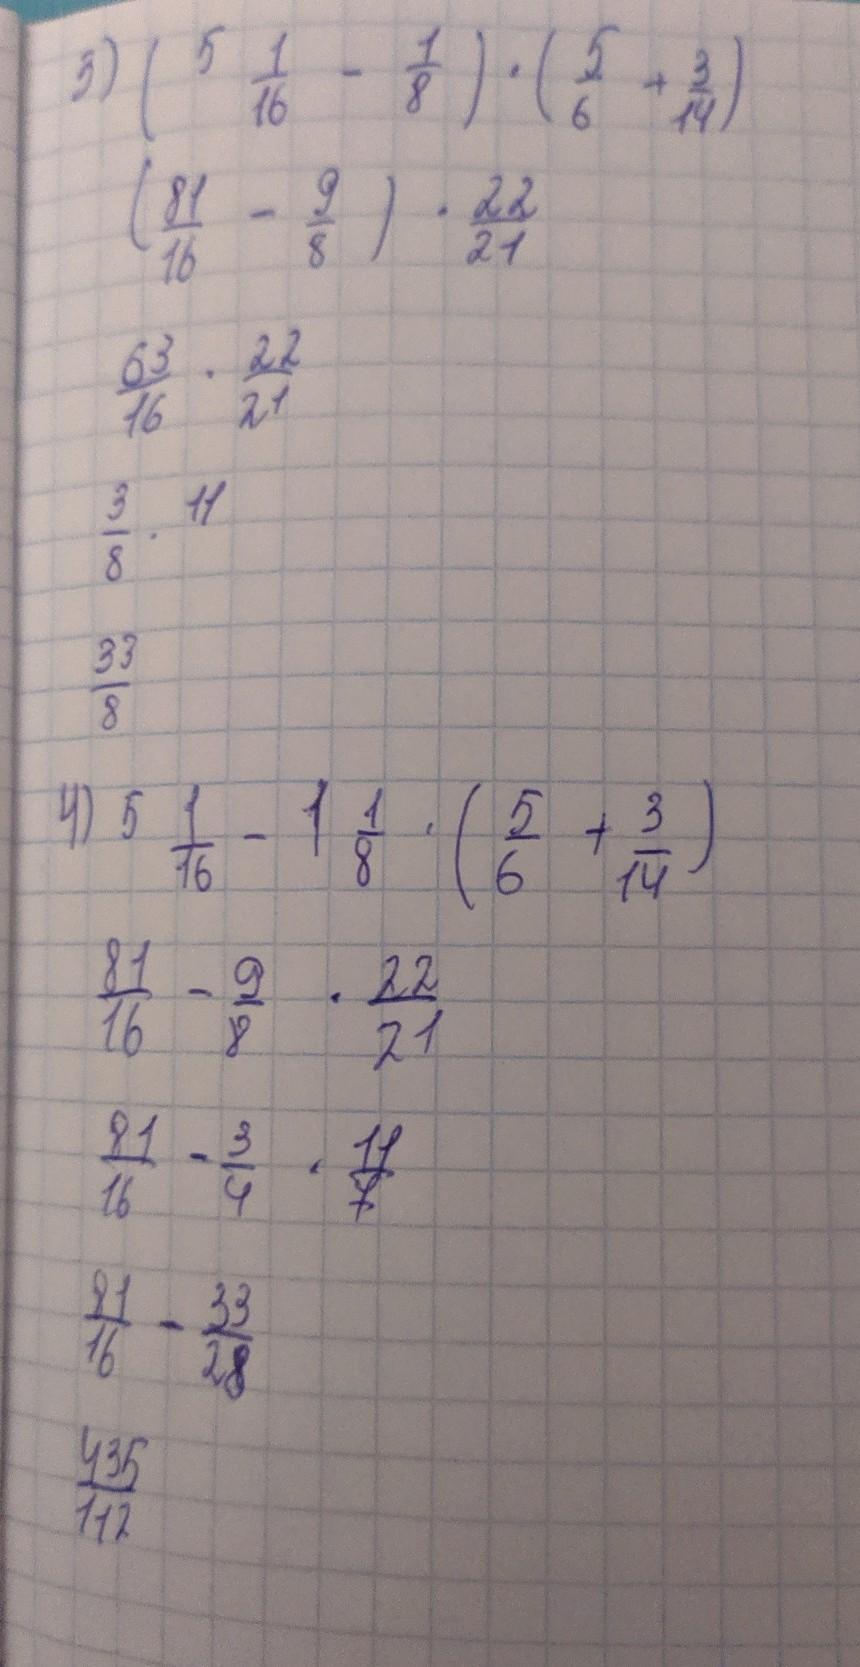 3) ( 5 1/16 - 1/8 ) · ( 5/6 + 3/14 )
( 81/16 - 9/8 ) · 22/21
63/16 · 22/21
3/8 · 11
33/8
4) 5 1/16 - 1 1/8 · ( 5/6 + 3/14 )
81/16 - 9/8 · 22/21
81/16 - 3/4 · 11/7
81/16 - 33/28
435/112